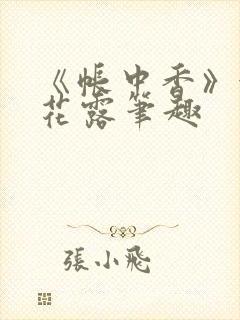 《帳中香》
花露筆趣
張小飛